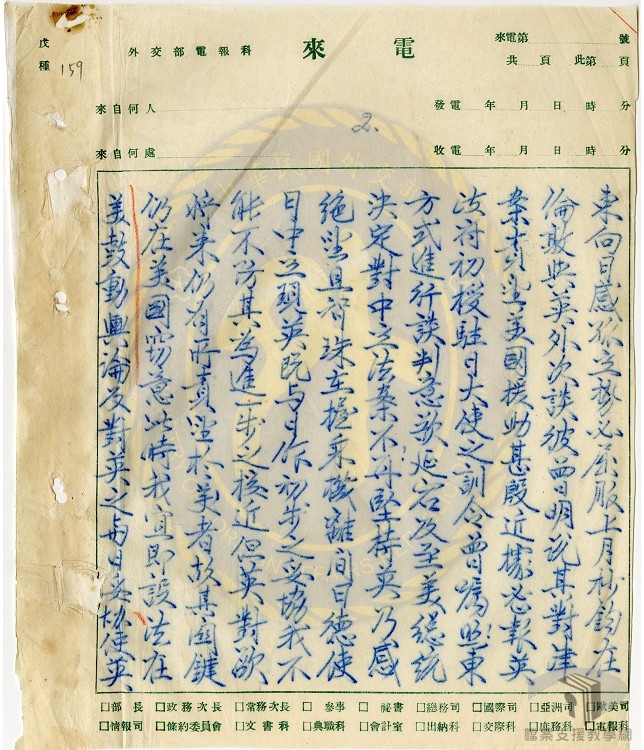 戊種
159
外交部電報科
來電
來電第 號
共 頁 此第 頁
來自何人
發電 年 月 日 時 分
2.
來自何處
收電 年 月 日 時 分
東向日感孤立勢必屈服上月杪鈞在
倫敦與英外次談彼曾明說其對津
案責望美國援助甚殷近據密報英
政府初授駐日大使之訓令曾囑照東
方式進行談判意欲延宕及至美總統
決定對中立法案不再堅持英乃感
絕望且 珠在握乘機離間日德使
日中立現英既與日作初步之妥協我不
能不防其為進一步之接近但英對歐
將來仍有所責望於美者故其關鍵
仍在美國竊意此時我宜即設法在
美鼓動輿論反對英之與日妥協使英
□部長 □政務次長 □常務次長 □參事 □祕書 □總務司 □國際司 □亞洲司 □歐美司
□情報司 □條約委員會 □文書科 □典職科 □會計室 □出納科 □交際科 □庶務科 □電報科
檔案支援教學網